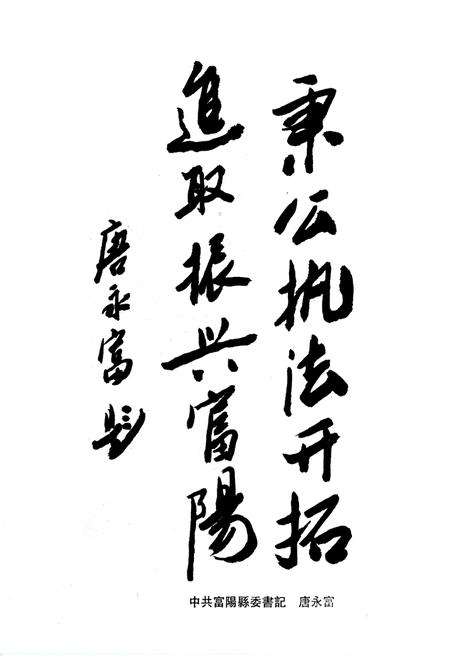 秉公执法开拓
進取振兴富陽
唐永富 题
中共富陽縣委書記 唐永富